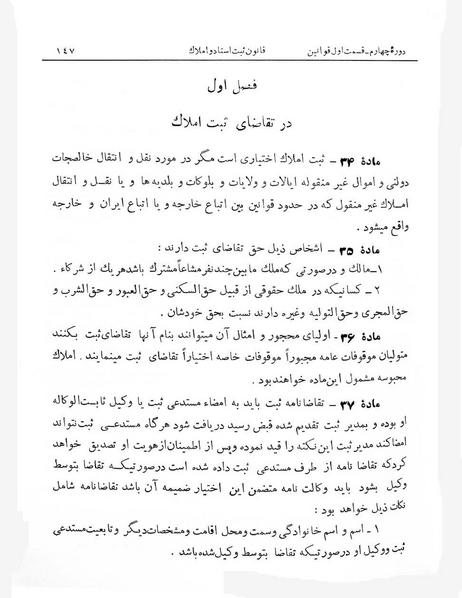 دورهٔ چهارم ـ قسمت اول قوانین قانون ثبت اسناد و املاك ١٤٧
فصل اول
در تقاضای ثبت املاك
مادهٔ ٣٤ ـ ثبت املاك اختیاری است مگر در مورد نقل و انتقال خالصجات
دولتی و اموال غیر منقوله ایالات و ولایات و بلوکات و بلدیه‌ها و یا نقل و انتقال
املاك غیر منقول که در حدود قوانین بین اتباع خارجه و یا اتباع ایران و خارجه
واقع میشود .
مادهٔ ٣٥ ـ اشخاص ذیل حق تقاضای ثبت دارند :
١ـ مالك و در صورتی که ملك مابین چند نفر مشاعاً مشترك باشد هر یك از شرکاء .
٢ ـ کسانیکه در ملك حقوقی از قبیل حق السکنی و حق العبور و حق الشرب و
حق المجری و حق التولیه وغیره دارند نسبت بحق خودشان .
مادهٔ ٣٦ ـ اولیای محجور و امثال آن میتوانند بنام آنها تقاضای ثبت بکنند
متولیان موقوفات عامه مجبوراً موقوفات خاصه اختیاراً تقاضای ثبت مینمایند . املاك
محبوسه مشمول این ماده خواهند بود .
مادهٔ ٣٧ ـ تقاضانامه ثبت باید به امضاء مستدعی ثبت یا وکیل ثابت الوکاله
او بوده و بمدیر ثبت تقدیم شده قبض رسید دریافت شود هرگاه مستدعی ثبت نتواند
امضا کند مدیر ثبت این نکته را قید نموده و پس از اطمینان از هویت او تصدیق خواهد
کرد که تقاضا نامه از طرف مستدعی ثبت داده شده است در صورتیکه تقاضا بتوسط
وکیل بشود باید وکالت نامه متضمن این اختیار ضمیمه آن باشد تقاضانامه شامل
نکات ذیل خواهد بود :
١ ـ اسم و اسم خانوادگی وسمت ومحل اقامت ومشخصات دیگر و تابعیت مستدعی
ثبت و وکیل او در صورتیکه تقاضا بتوسط وکیل شده باشد .